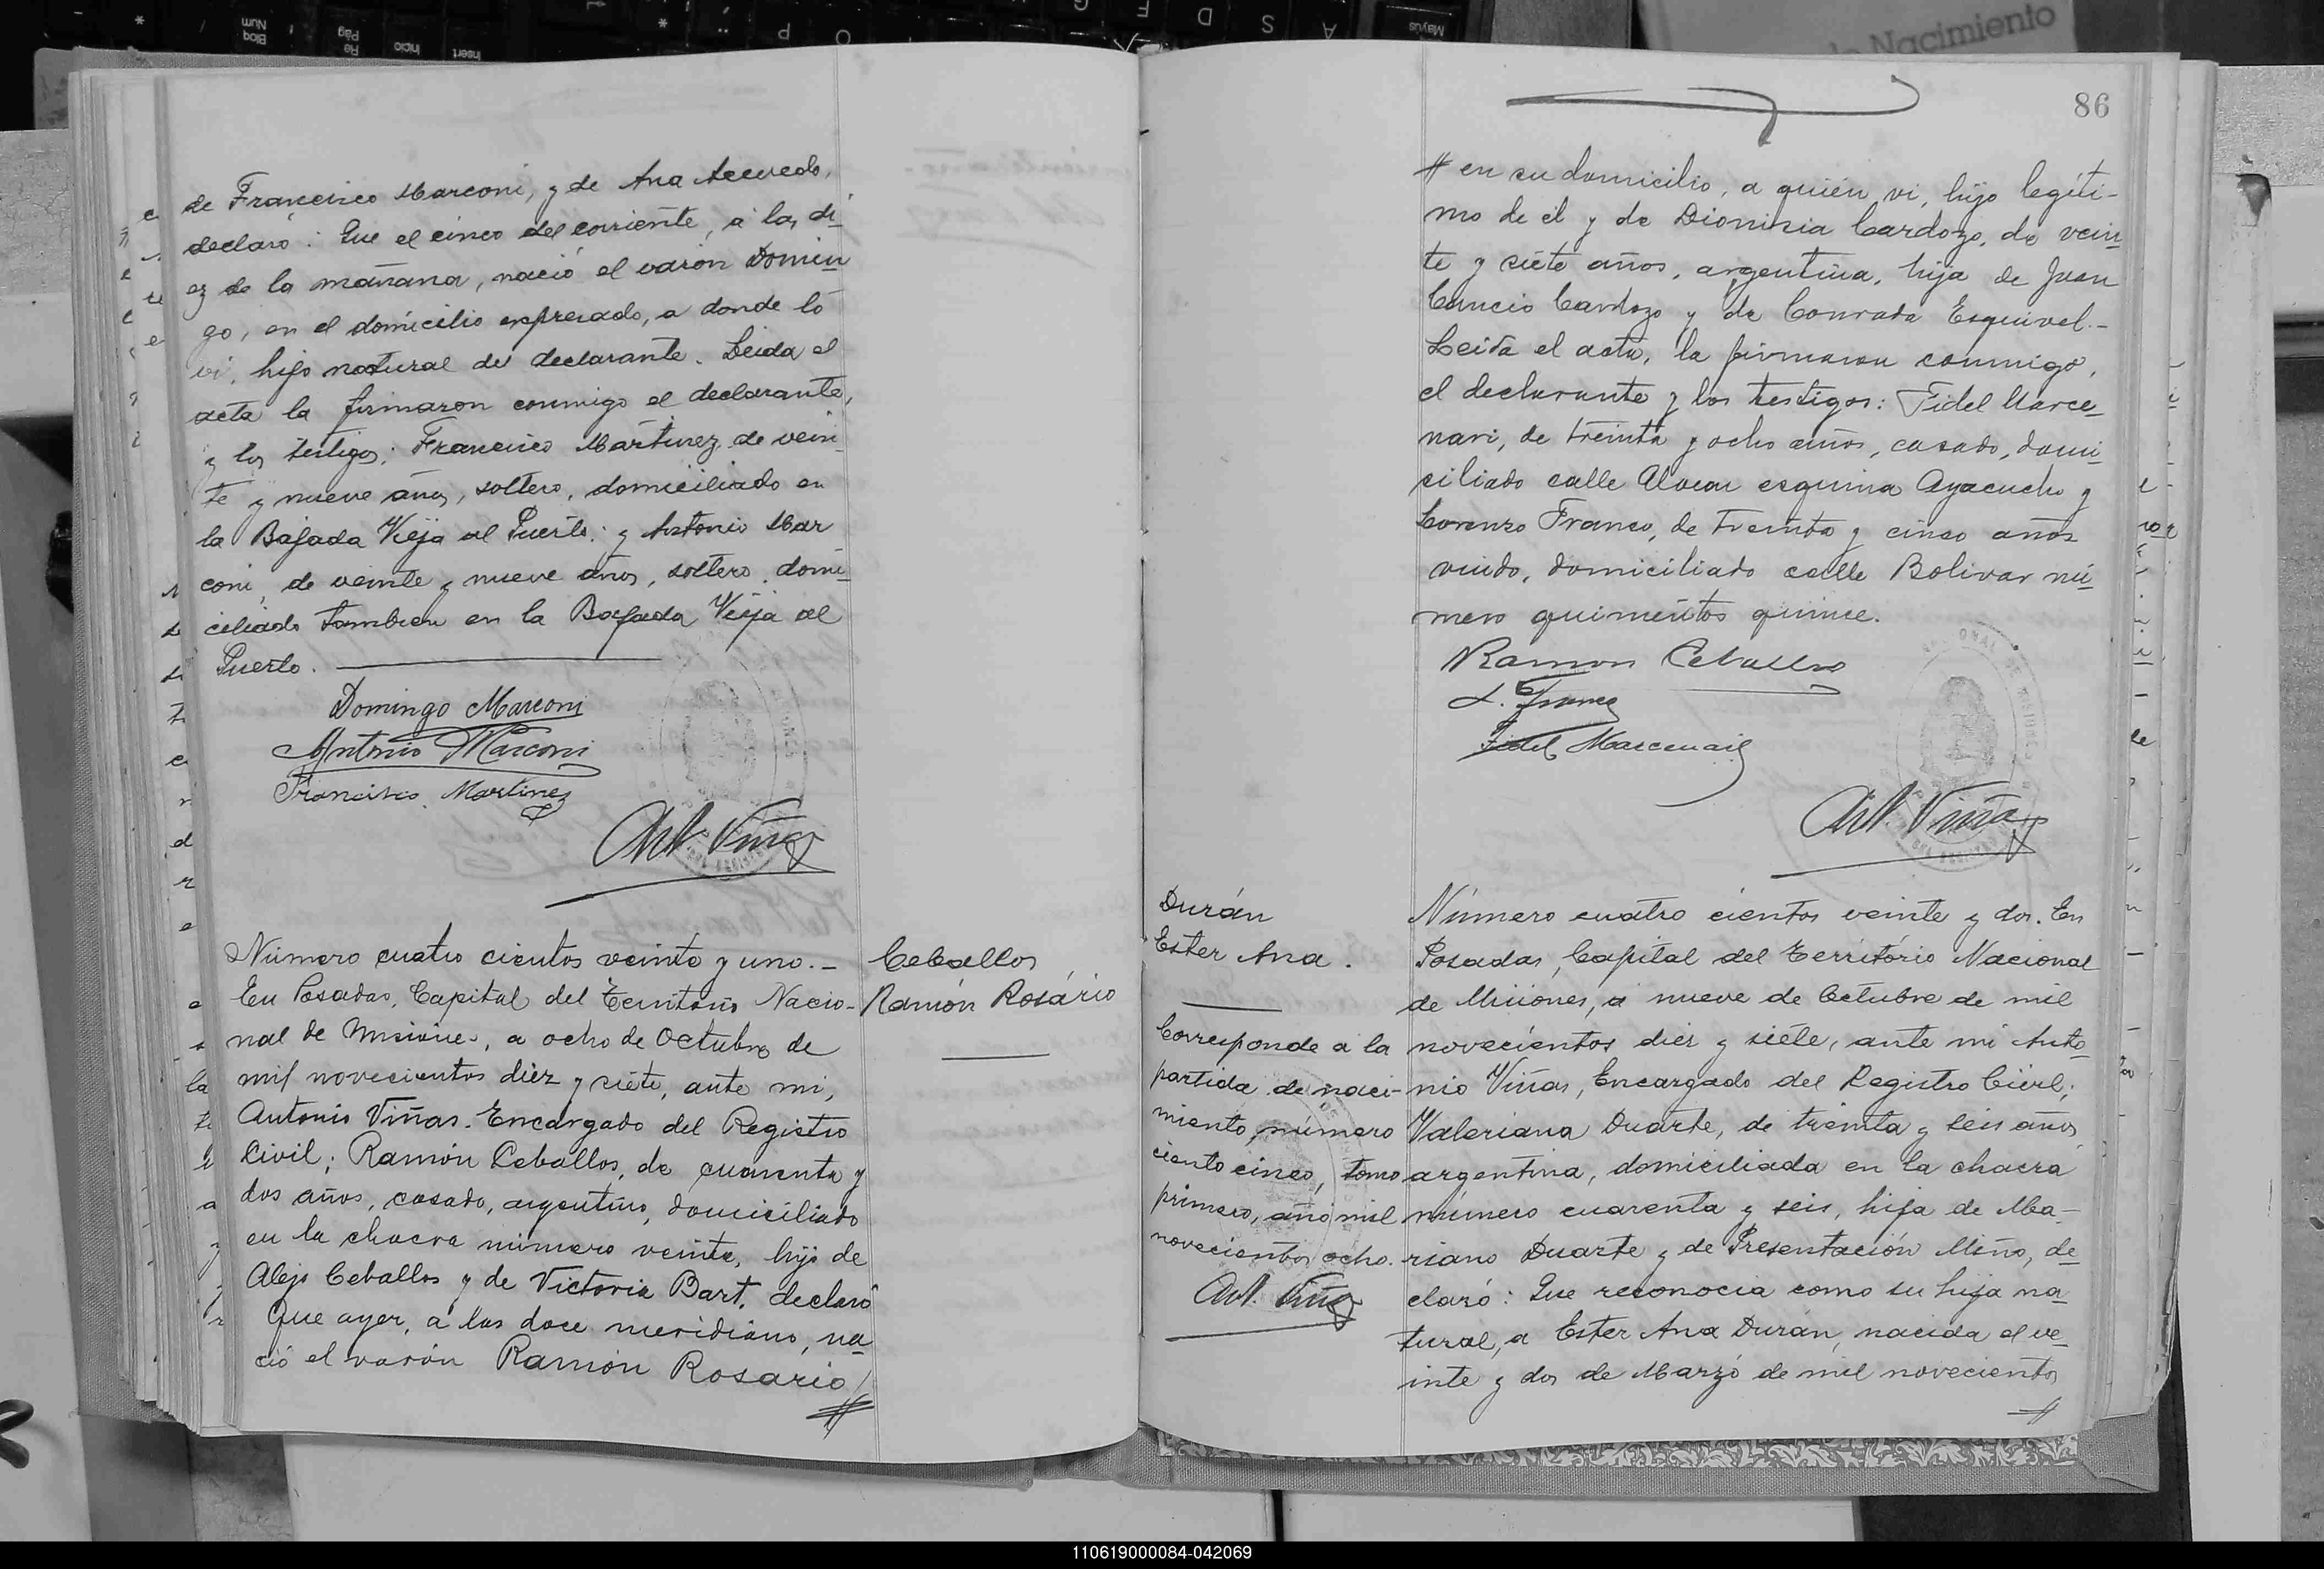 de Francisco Marconi, y de Ana Acevedo,
declaró: Que el cinco del corriente, á las di
ez de la mañana, nació el varón Domin
go, en el domicilio expresado, a donde lo
vi, hijo natural del declarante. Leida el
acta la firmaron conmigo el declarante,
y los testigos: Francisco Martinez, de vein
te y nueve años, soltero, domiciliado en
la Bajada Vieja al Puerto; y Antonio Mar
coni, de veinte y nueve años, soltero, domi
ciliado tambien en la Bajada Vieja al
Puerto.
Domingo Marconi
Antonio Marconi
Francisco Martinez
Ant. Viñas
Número cuatro cientos veinte y uno.-
En Posadas, Capital del Territorio Nacio-
nal de Misiones, a ocho de Octubre de
mil novecientos diez y siete, ante mi,
Antonio Viñas. Encargado del Registro
Civil; Ramón Ceballos, de cuarenta y
dos años, casado, argentino, domiciliado
en la chacra número veinte, hijo de
Alejo Ceballos y de Victoria Bart, declaró
Que ayer, á las doce meridiano, na
ció el varón Ramón Rosario
Ceballos
Ramón Rosário
86
en su domicilio, a quién vi, hijo legíti-
mo de él y de Dionisia Cardozo, de vein
te y siete años, argentina, hija de Juan
Cancio Cardozo y de Conrada Esquivel.-
Leida el acta, la firmaron conmigo,
el declarante y los testigos: Fidel Marce
nari, de treinta y ocho años, casado, domi
siliado calle Alvear esquina Ayacucho y
Lorenzo Franco, de treinta y cinco años
viudo, domiciliado calle Bolivar nú
mero quinientos quince.
Ramon Ceballos
L. Franco
Fidel Marcenari
Ant. Viñas
Durán
Ester Ana.
Corresponde a la
partida de naci-
miento, número
ciento cinco, tomo
primero, año mil
novecientos ocho.
Ant. Viñas
Número cuatro cientos veinte y dos. En
Posadas, Capital del Território Nacional
de Misiones, a nueve de Octubre de mil
novecientos diez y siete, ante mi Anto
nio Viñas, Encargado del Registro Civil;
Valeriana Duarte, de treinta y seis años
argentina, domiciliada en la chacra
número cuarenta y seis, hija de Ma-
riano Duarte y de Presentación Miño, de
claró: Que reconocía como su hija na
tural, a Ester Ana Durán, nacida el ve
inte y dos de Marzo de mil novecientos
110619000084-042069